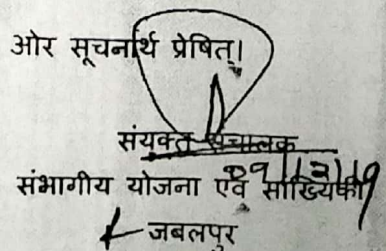 ओर सूचनार्थ प्रेषित्।
संयुक्त संचालक
संभागीय योजना एवं सांख्यिकी
जबलपुर